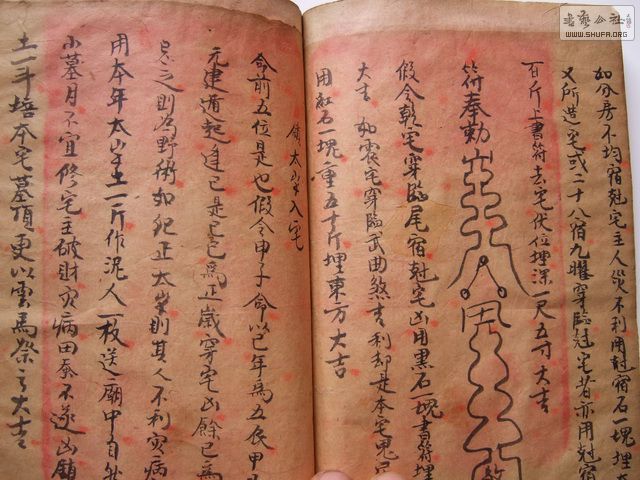 如分房不均宿尅宅主人災不利用尅宿石一塊埋在
又所造宅或二十八宿九曜穿臨尅宅者亦用尅宿
百斤上書符去宅伏位埋深一尺五寸大吉
符奉勅
假令乾宅穿臨尾宿尅宅凶用黑石一塊書符埋
大吉 如震宅穿臨武曲煞吉利却是本宅鬼
用紅石一塊重五十斤埋東方大吉
鎮太歲入宅
命前五位是也假令甲子命以己年為五辰甲
元建遁起逢己是己巳為正歲穿宅凶餘巳為
忌之則為野術如犯正太歲則其人不利灾病
用本年太歲土一斤作泥人一枚送廟中自然
小墓月不宜修宅主破財灾病田蚕不遂凶鎮
土一斗培本宅墓頂更以雲馬祭之大吉
書藝公社
WWW.SHUFA.ORG